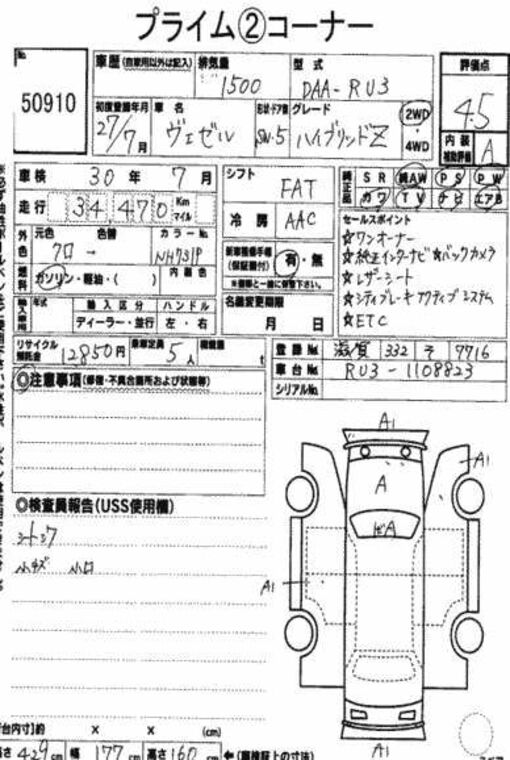 プライム②コーナー
No. 50910
車歴(自家用以外は記入) 排気量 1500 型式 DAA-RU3
評価点 4.5
初度登録年月 27/7月 車名 ヴェゼル 形状・ドア数 SW・5 グレード ハイブリッドZ 2WD・4WD
内装補助評価 A
車検 30年7月
シフト FAT
純正品 SR 純AW PS PW
カワ TV ナビ エアB
走行 34,470 Km マイル
冷房 AAC
セールスポイント
☆ワンオーナー
☆純正インターナビ☆バックカメラ
☆レザーシート
☆シティブレーキアクティブシステム
☆ETC
外色 元色 色替 カラーNo.
クロ→ NH731P
新車整備手帳(保証書付) 有・無
※書類と一緒に保管下さい。
燃料 ガソリン・軽油・( ) 内装色
名義変更期限
月 日
輸入車用 年式 輸入区分 ハンドル
ディーラー・並行 左・右
リサイクル預託金 12850円 乗車定員 5人 積載量 t
登録No. 滋賀 332 そ 7716
車台No. RU3-1108823
シリアルNo.
◎注意事項(修復・不具合箇所および状態等)
◎検査員報告(USS使用欄)
シートシワ
小キズ 小凹
A1
A1
A
ビA
A1
A1
台内寸]約 × × (cm)
長さ 429cm 幅 177cm 高さ 160cm ←(車検証上の寸法)
スペア